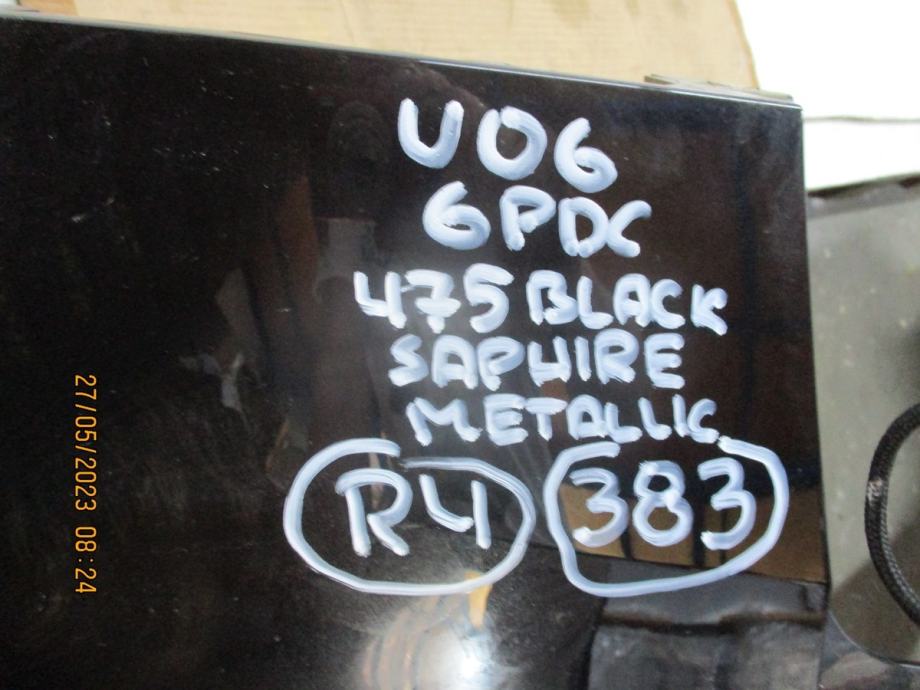 U06
6PDC
475 BLACK
SAPHIRE
METALLIC
R4 383
27/05/2023 08:24